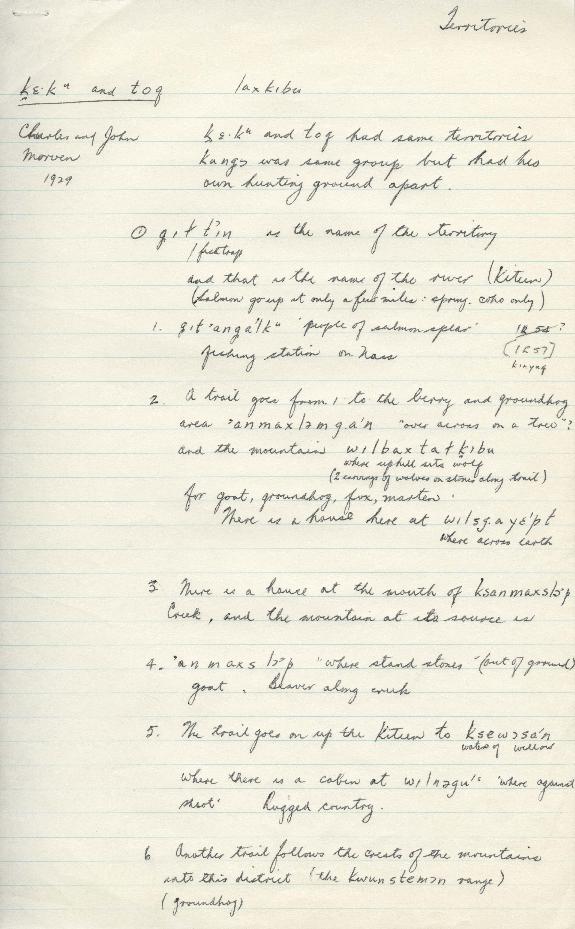 Territories
ḵɛ·kᵘ and toq laxkibu
Charles and John
Morven
1929
ḵɛ·kᵘ and toq had same territories
was same group but had his
own hunting ground apart.
① g.ıɫ t'in is the name of the territory
/ fish trap
and that is the name of the river (Kiteen)
(Salmon go up it only a few miles: spring, coho only)
1. gıt'anga'lkᵘ 'people of salmon spear'
fishing station on Nass
1R 54?
[1R 57]
kinyug
2. A trail goes from 1 to the berry and groundhog
area 'anmaxlɔmg.a'n "over across on a tree"?
and the mountain wılbaxtaɫkibu
where uphill sits wolf
(2 carvings of wolves on stones along trail)
for goat, groundhog, fox, marten.
There is a house here at wılsg.ayɛ'pt
where across earth
3 There is a house at the mouth of ksanmaxslɔ'p
Creek, and the mountain at its source is
4. 'anmaxslɔ'p "where stand stones" (out of ground)
goat. Beaver along creek
5. The trail goes on up the Kiteen to ksewɔsa'n
water of willow
where there is a cabin at wılnɔgu'ᵋ 'where against
shoot' Rugged country.
6 Another trail follows the crests of the mountains
into this district (the Kwunstemɔn range)
(groundhog)